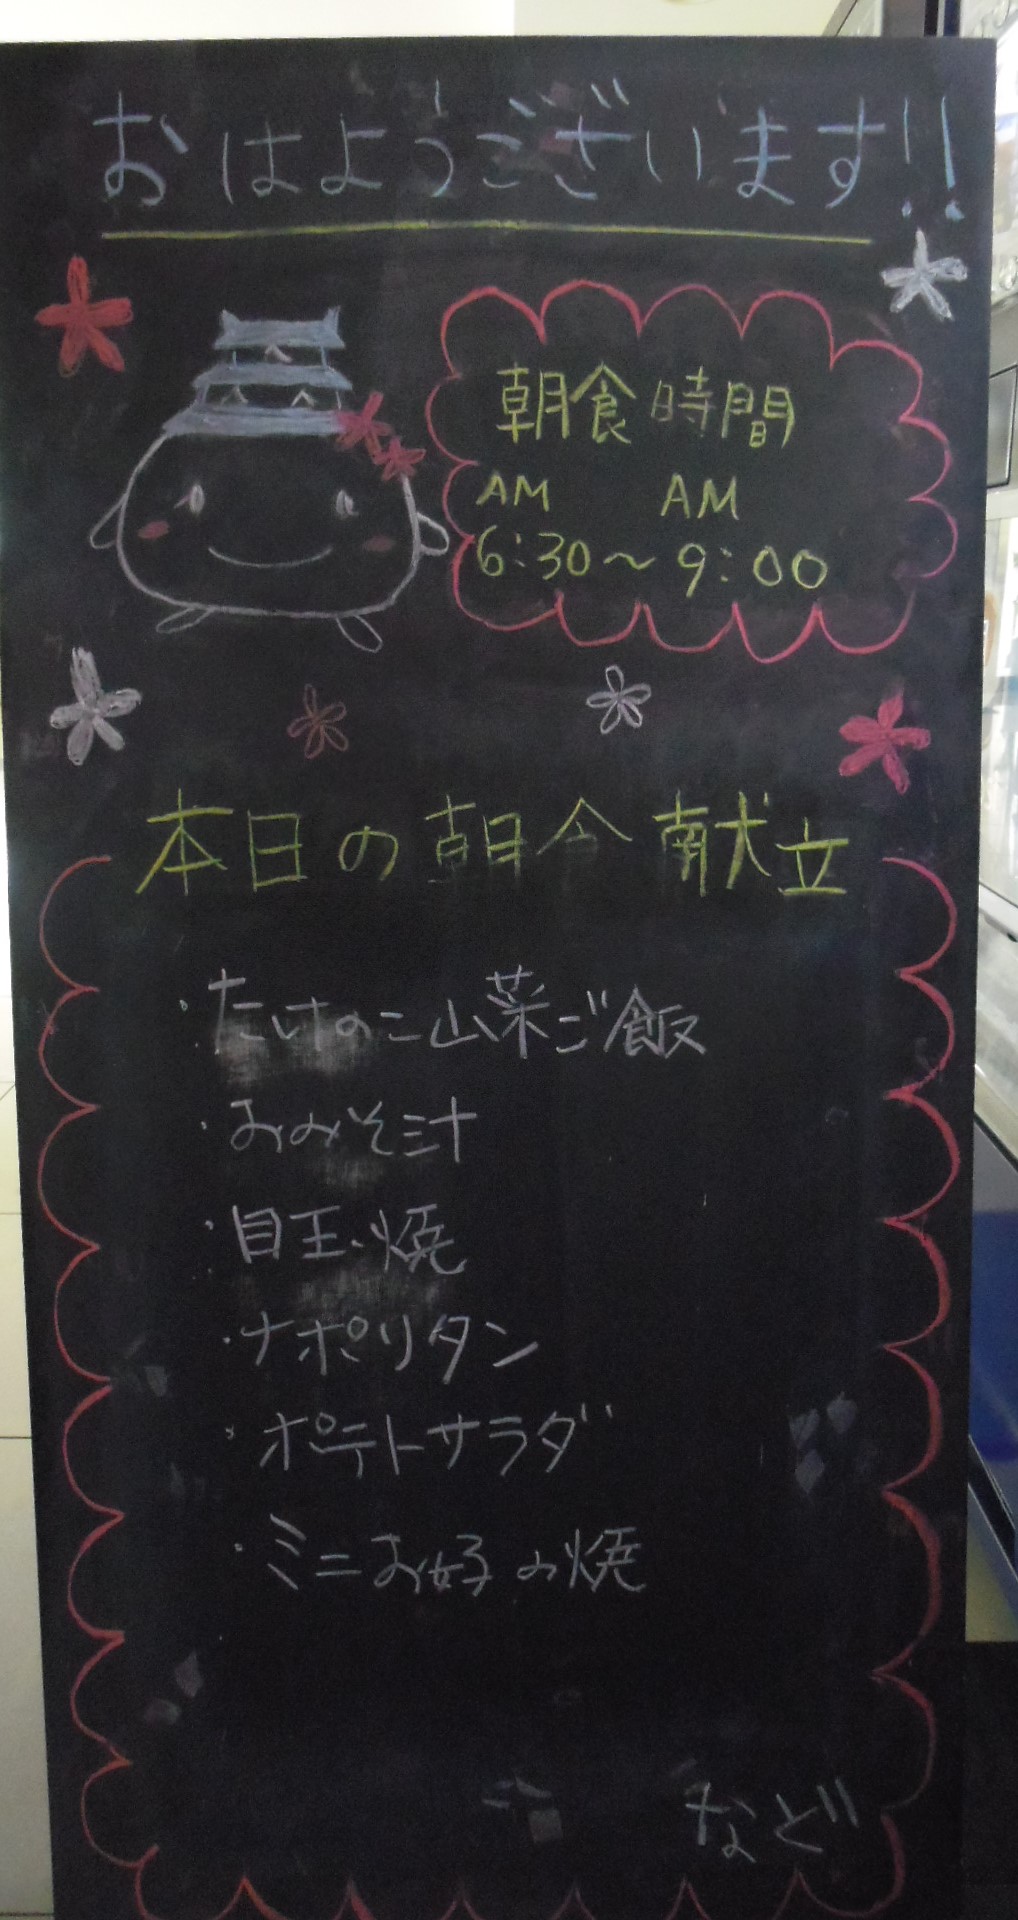 おはようございます!!
朝食時間
AM AM
6:30～9:00
本日の朝食献立
・たけのこ山菜ご飯
・おみそ汁
・目玉焼
・ナポリタン
・ポテトサラダ
・ミニお好み焼
など